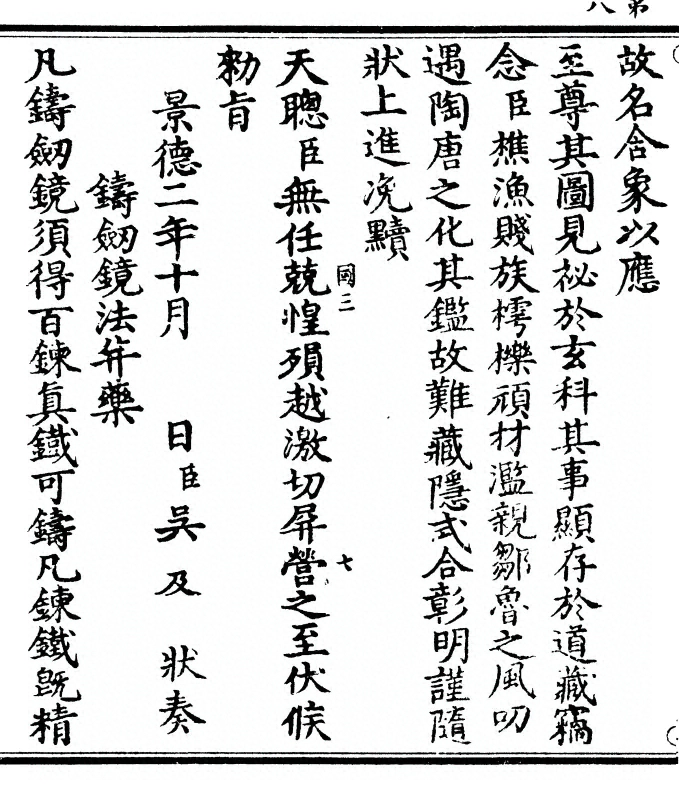 故名含象以應
至尊其圖見祕於玄科其事顯存於道藏竊
念臣樵漁賤族樗櫟頑材濫親鄒魯之風叨
遇陶唐之化其鑑故難藏隱式合彰明謹隨
狀上進冼黷
國三
七
天聰臣無任兢惶殞越激切屏營之至伏候
勑旨
景德二年十月 日臣吴及 狀奏
鑄劒鏡法并藥
凡鑄劒鏡須得百鍊真鐵可鑄凡鍊鐵旣精